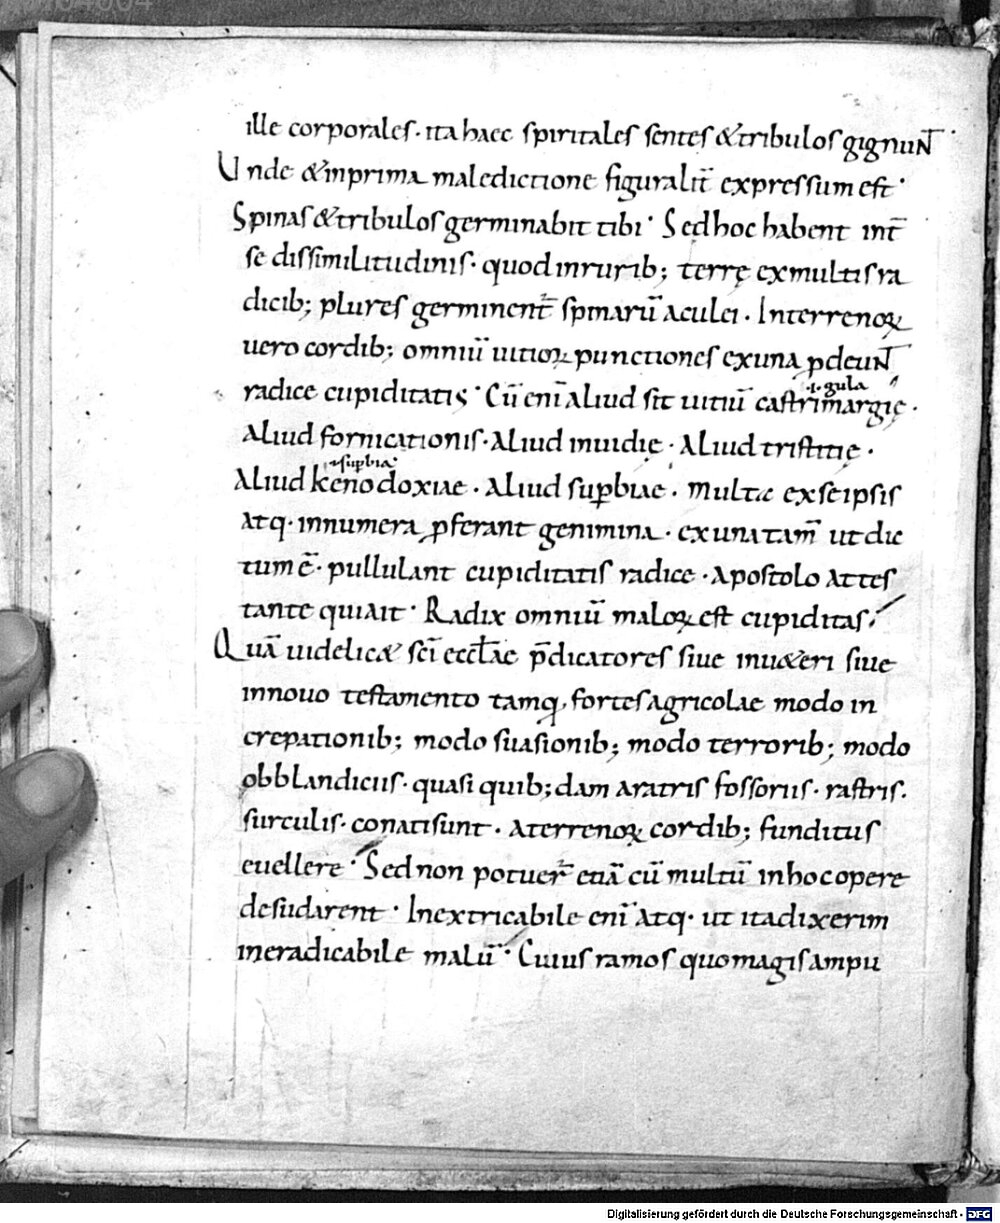 ille corporales · ita haec spiritales sentes & tribulos gignuNT̄ ·
Unde & inprima maledictione figuralit̄ expressum est ·
Spinas & tribulos germinabit tibi · Sed hoc habent int̄
se dissimilitudinis · quod in rurib; terrę ex multis ra
dicib; plures germinent̄ spinarū aculei · In terrenoꝝ
uero cordib; omniū uitioꝝ punctiones ex una ꝓdeuNT̄
·i· gula
radice cupiditatis · Cū enī aliud sit uitiū castrimargię ·
aliud fornicationis · aliud inuidię · aliud tristitię ·
·i· suꝑbia
aliud kenodoxiae · aliud suꝑbiae · multa ex seipsis
atq · innumera ꝓferant genimina · ex una tam̄ ut dic
tum ē · pullulant cupiditatis radice · apostolo attes
tante qui ait · Radix omniū maloꝝ est cupiditas ·
Quā uidelic& sc̄i eccl̄ae p̄dicatores siue in u&eri siue
in nouo testamento tamq̄ fortes agricolae modo in
crepationib; modo suasionib; modo terrorib; modo
obblandiciis · quasi quib;dam aratris fossoriis · rastris ·
surculis · conati sunt · a terrenoꝝ cordib; funditus
euellere · Sed non potuer̄ etiā cū multū in hoc opere
desudarent · Inextricabile enī atq · ut ita dixerim
ineradicabile malū · Cuius ramos quo magis ampu
Digitalisierung gefördert durch die Deutsche Forschungsgemeinschaft - DFG